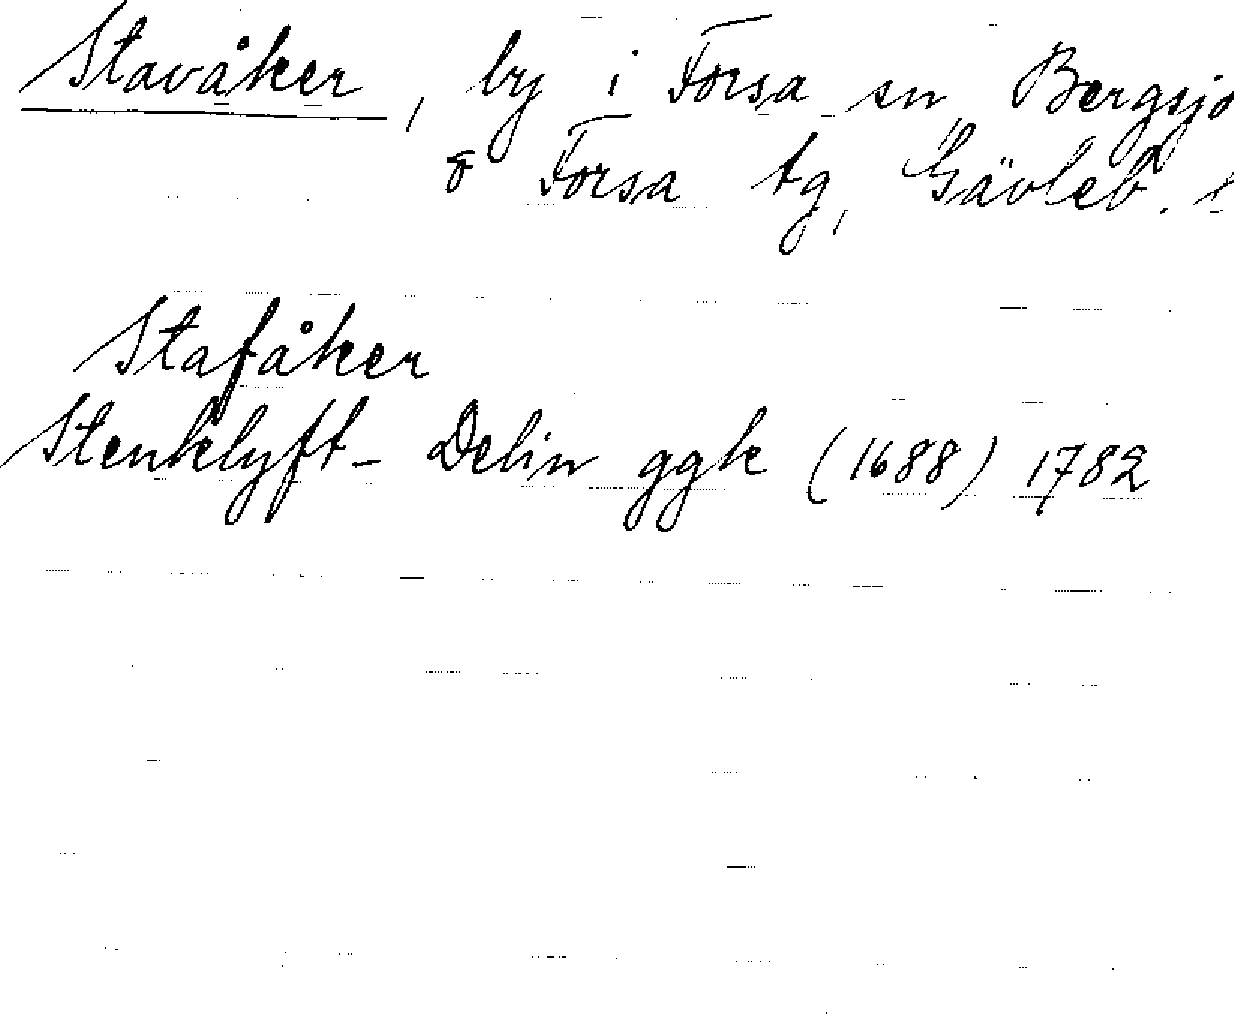 Stavåker, by i Forsa sn, Bergsjö
o Forsa tg, Gävleb. l
Stafåker
Stenklyft- Delin ggk (1688) 1782